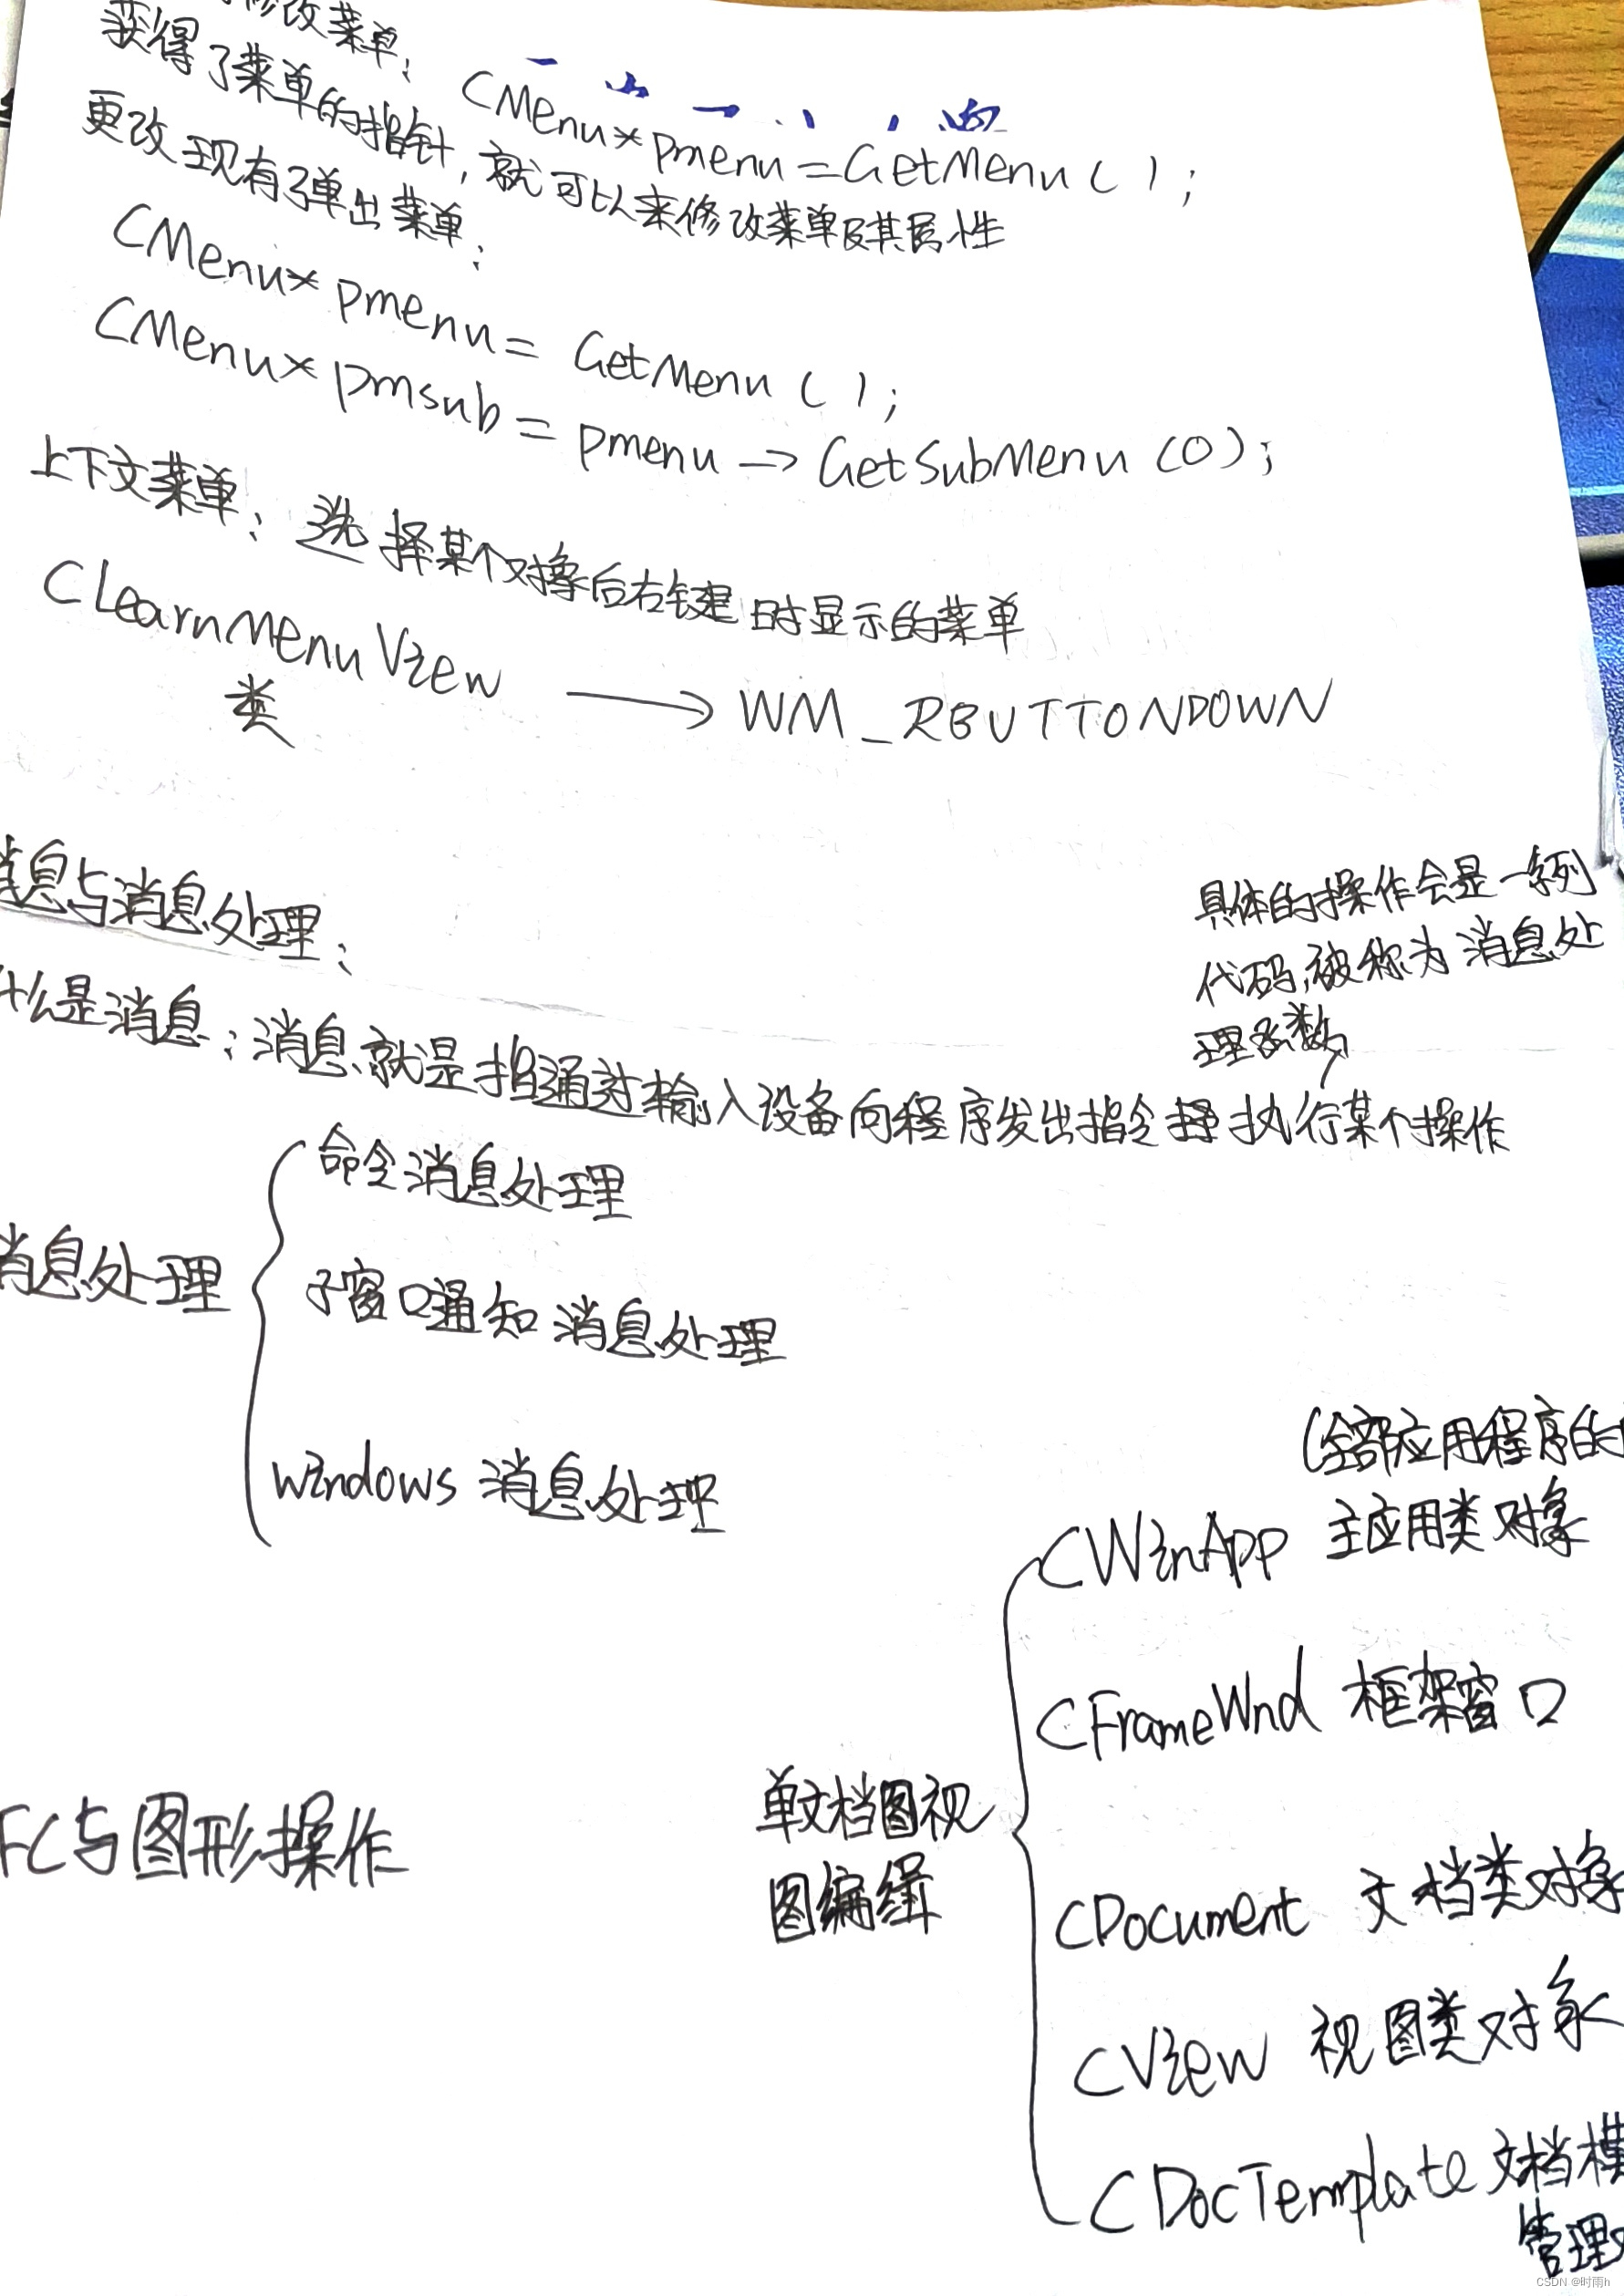 修改菜单: CMenu*pmenu=GetMenu();
获得了菜单的指针,就可以来修改菜单及其属性
更改现有弹出菜单:
CMenu* pmenu= GetMenu();
CMenu* pmsub = pmenu -> GetSubMenu(0);
上下文菜单: 选择某个对象后右键时显示的菜单
CLearnMenuView
类
→ WM_RBUTTONDOWN
息与消息处理:
具体的操作会是一系列
代码,被称为消息处
理函数
什么是消息:消息就是指通过输入设备向程序发出指令 执行某个操作
消息处理
命令消息处理
子窗口通知消息处理
windows 消息处理
(全部应用程序的
CWinApp 主应用类对象
CFrameWnd 框架窗口
单文档图视
图编缉
FC与图形操作
CDocument 文档类对象
CView 视图类对象
CDocTemplate 文档模
管理
CSDN @时雨h